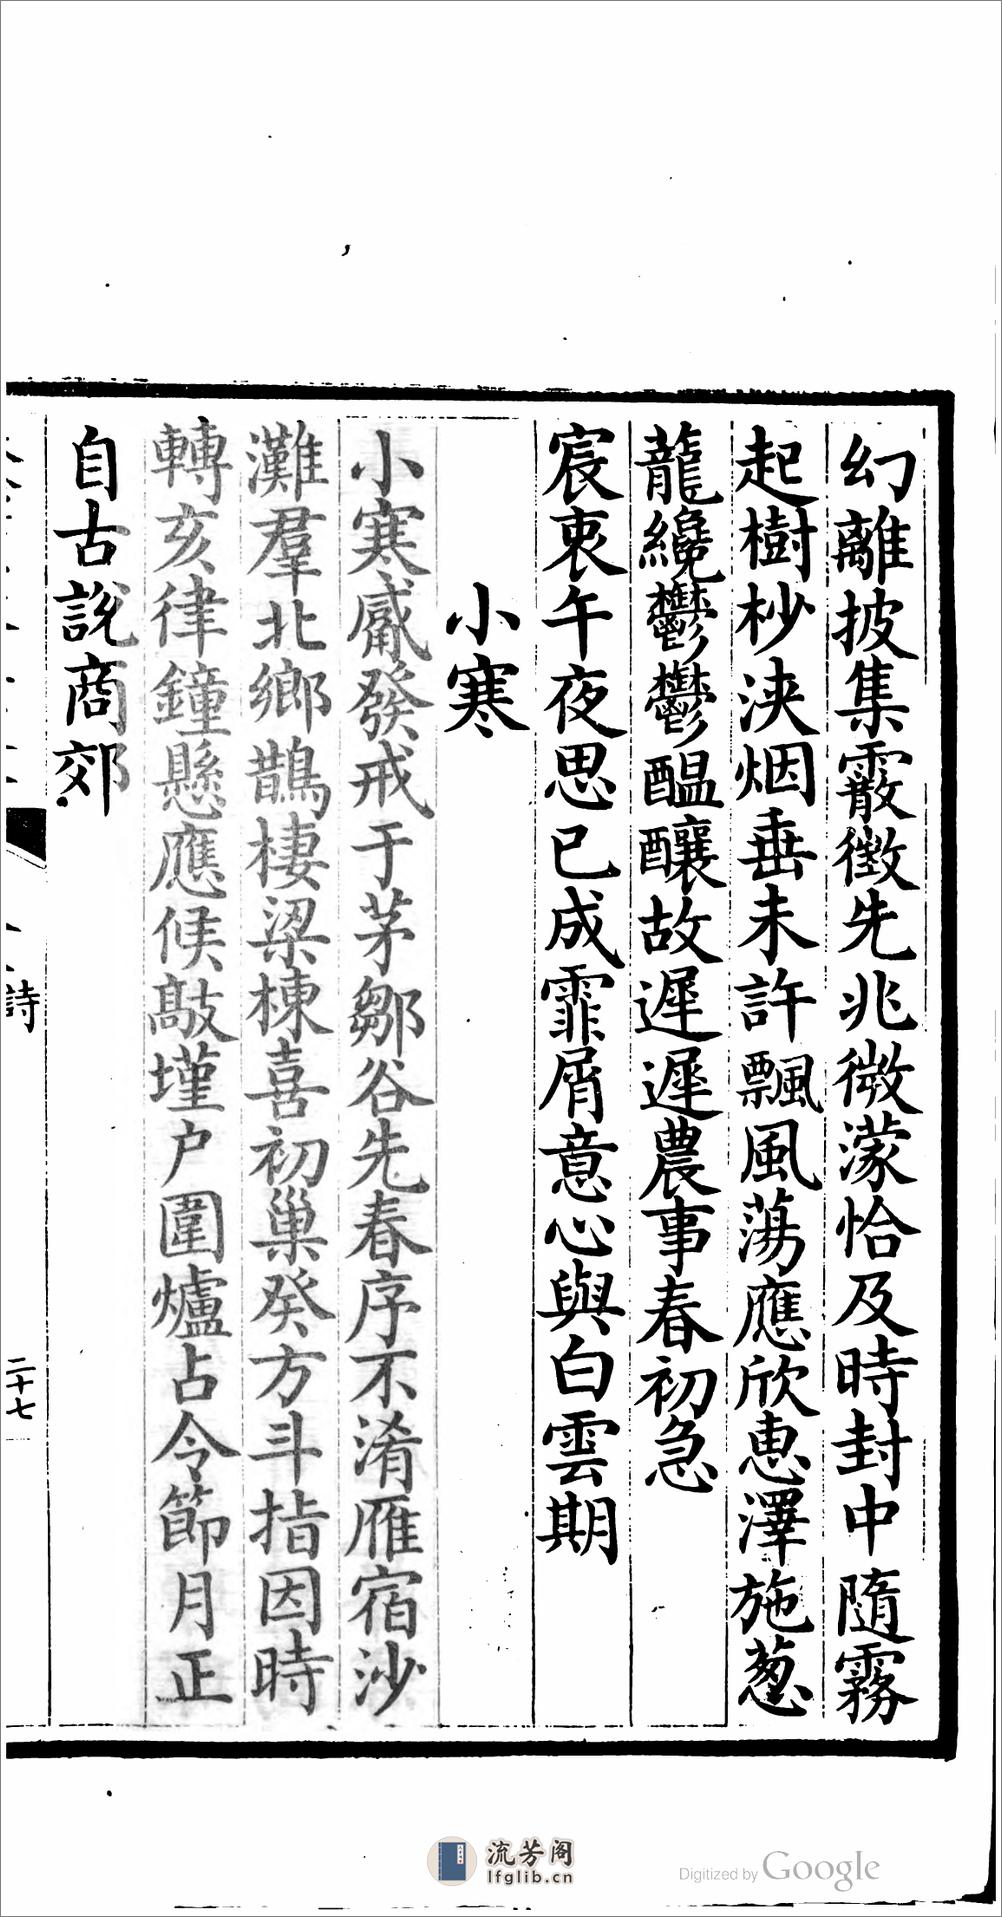 幻離披集霰徵先兆微濛恰及時封中隨霧
起樹杪浹烟垂未許飄風蕩應欣惠澤施蔥
蘢纔鬱鬱醖釀故遲遲農事春初急
宸衷午夜思已成霏屑意心與白雲期
小寒
小寒觱發戒于茅鄒谷先春序不淆雁宿沙
灘羣北鄉鵲棲梁棟喜初巢癸方斗指因時
轉亥律鐘懸應候敲墐户圍爐占令節月正
自古說商郊
詩
二十七
流芳阁
lfglib.cn
Digitized by Google